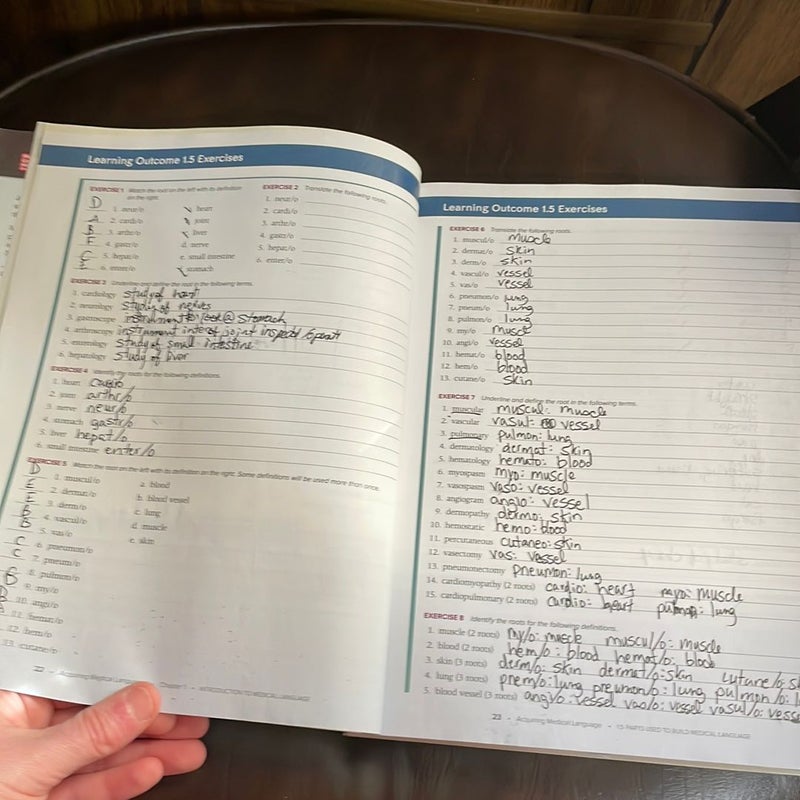 Learning Outcome 1.5 Exercises
EXERCISE 1 Match the root on the left with its definition on the right.
D 1. neur/o heart
A 2. cardi/o joint
B 3. arthr/o liver
F 4. gastr/o d. nerve
C 5. hepat/o e. small intestine
E 6. enter/o stomach
EXERCISE 2 Translate the following roots.
1. neur/o
2. cardi/o
3. arthr/o
4. gastr/o
5. hepat/o
6. enter/o
EXERCISE 3 Underline and define the root in the following terms.
1. cardiology study of heart
2. neurology study of nerves
3. gastroscope instrument to look @ stomach
4. arthroscopy instrument joint inspect
5. enterology study of small intestine
6. hepatology study of liver
EXERCISE 4 Identify the roots for the following definitions.
1. heart
2. joint arthr/o
3. nerve neur/o
4. stomach gastr/o
5. liver hepat/o
6. small intestine enter/o
EXERCISE 5 Match the root on the left with its definition on the right. Some definitions will be used more than once.
D 1. muscul/o a. blood
E 2. dermat/o b. blood vessel
E 3. derm/o c. lung
B 4. vascul/o d. muscle
B 5. vas/o e. skin
C 6. pneumon/o
C 7. pneum/o
8. pulmon/o
9. my/o
10. angi/o
11. hemat/o
12. hem/o
13. cutane/o
22 • Acquiring Medical Chapter 1 • INTRODUCTION TO MEDICAL LANGUAGE
Learning Outcome 1.5 Exercises
EXERCISE 6 Translate the following roots.
1. muscul/o muscle
2. dermat/o skin
3. derm/o skin
4. vascul/o vessel
5. vas/o vessel
6. pneumon/o lung
7. pneum/o lung
8. pulmon/o lung
9. my/o muscl
10. angi/o vessel
11. hemat/o blood
12. hem/o blood
13. cutane/o skin
EXERCISE 7 Underline and define the root in the following terms.
1. muscular muscul: muscle
2. vascular vasul: vessel
3. pulmonary pulmon: lung
4. dermatology dermat: skin
5. hematology hemato: blood
6. myospasm myo: muscle
7. vasospasm vaso: vessel
8. angiogram angio: vessel
9. dermopathy dermo: skin
10. hemostatic hemo: blood
11. percutaneous cutaneo: skin
12. vasectomy vas: vessel
13. pneumonectomy pneumon: lung
14. cardiomyopathy (2 roots) cardio: heart myo: muscle
15. cardiopulmonary (2 roots) cardio: heart pulmon: lung
EXERCISE 8 Identify the roots for the following definitions.
1. muscle (2 roots) my/o: muscle muscul/o: muscle
2. blood (2 roots) hem/o: blood hemat/o: blood
3. skin (3 roots) derm/o: skin dermat/o: skin cutane/o: s
4. lung (3 roots) pnem/o: lung pneumon/o: lung pulmon/o: l
5. blood vessel (3 roots) angi/o: vessel vas/o: vessel vasul/o: vesse
23 • Acquiring Medical Language • 1.5 PARTS USED TO BUILD MEDICAL LANGUAGE